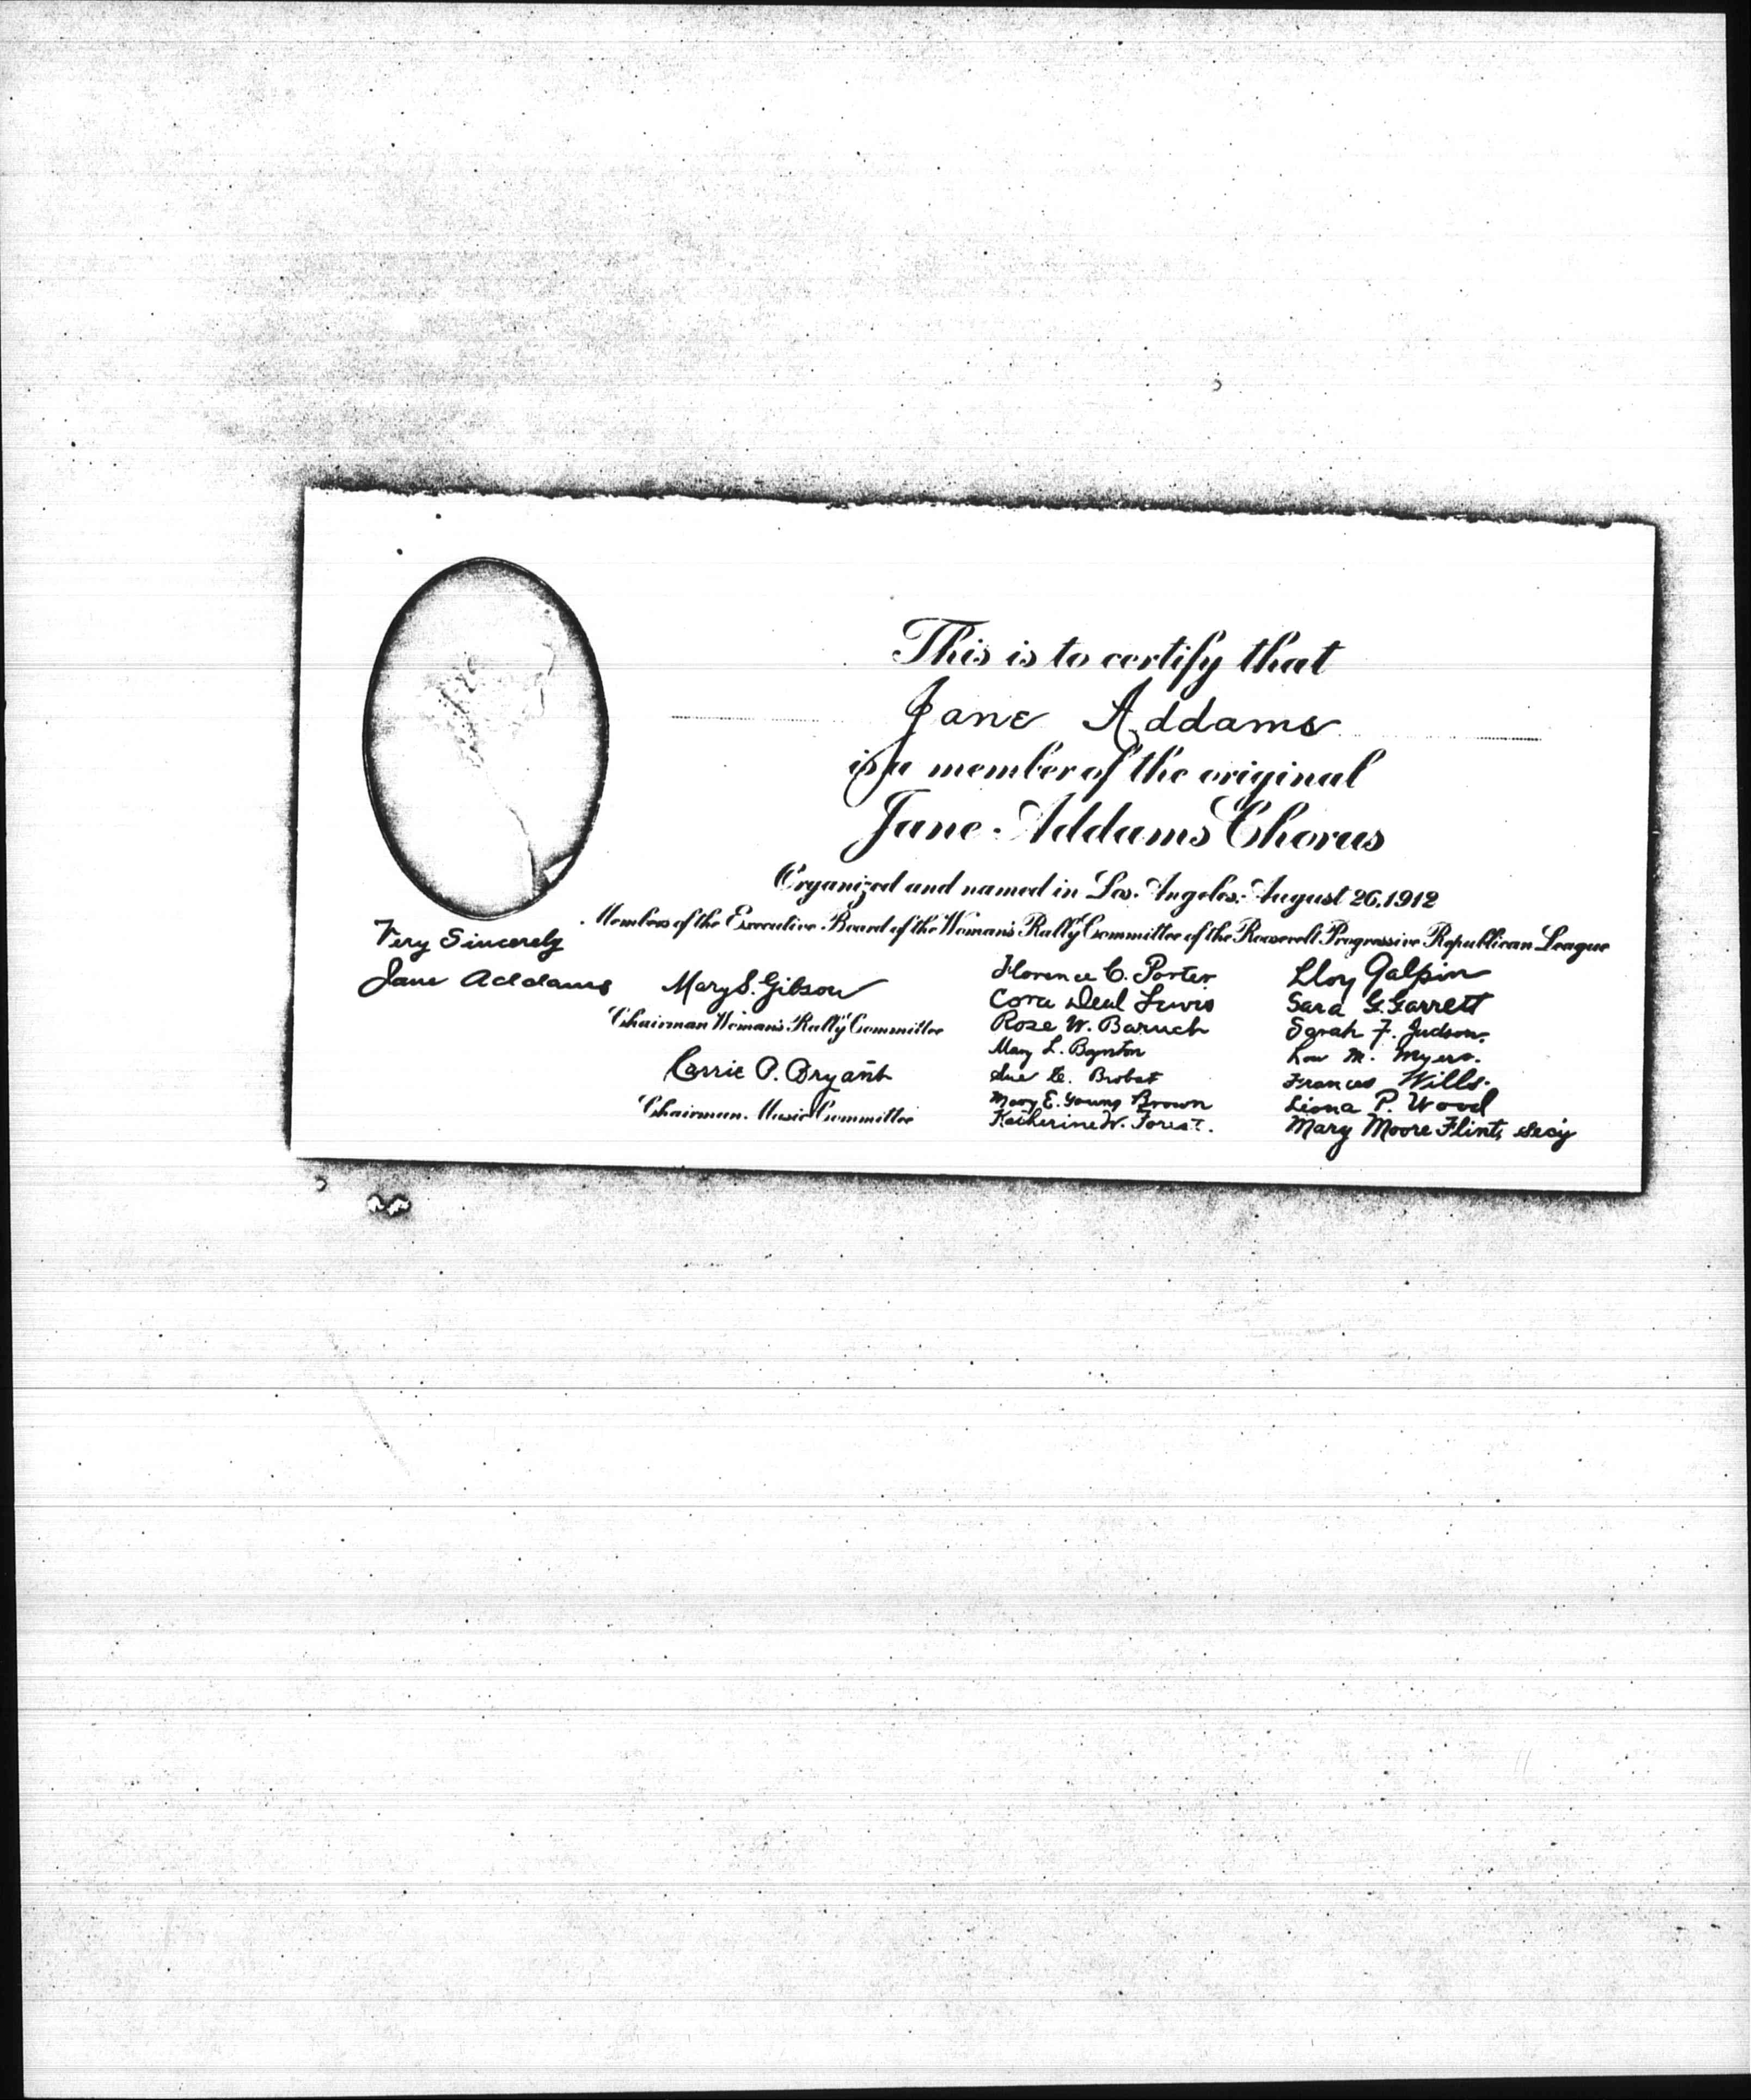 This is to certify that
Jane Addams
is a member of the original
Jane Addams Chorus
Organized and named in Los Angeles, August 26, 1912
Members of the Executive Board of the Woman's Rally Committee of the Roosevelt Progressive Republican League
Very Sincerely
Jane Addams
Mary S. Gibson
Chairman Woman's Rally Committee
Carrie P. Bryant
Chairman Music Committee
Florence C. Porter
Cora Deal Lewis
Rose W. Baruch
Mary L. Boynton
Sue E. Brobst
Mary E. Young Brown
Katherine W. Forest.
Lloy Galpin
Sara G. Garrett
Sarah F. Judson.
Lou M. Myers.
Frances Wills.
Liona P. Wood
Mary Moore Flint, Sec'y